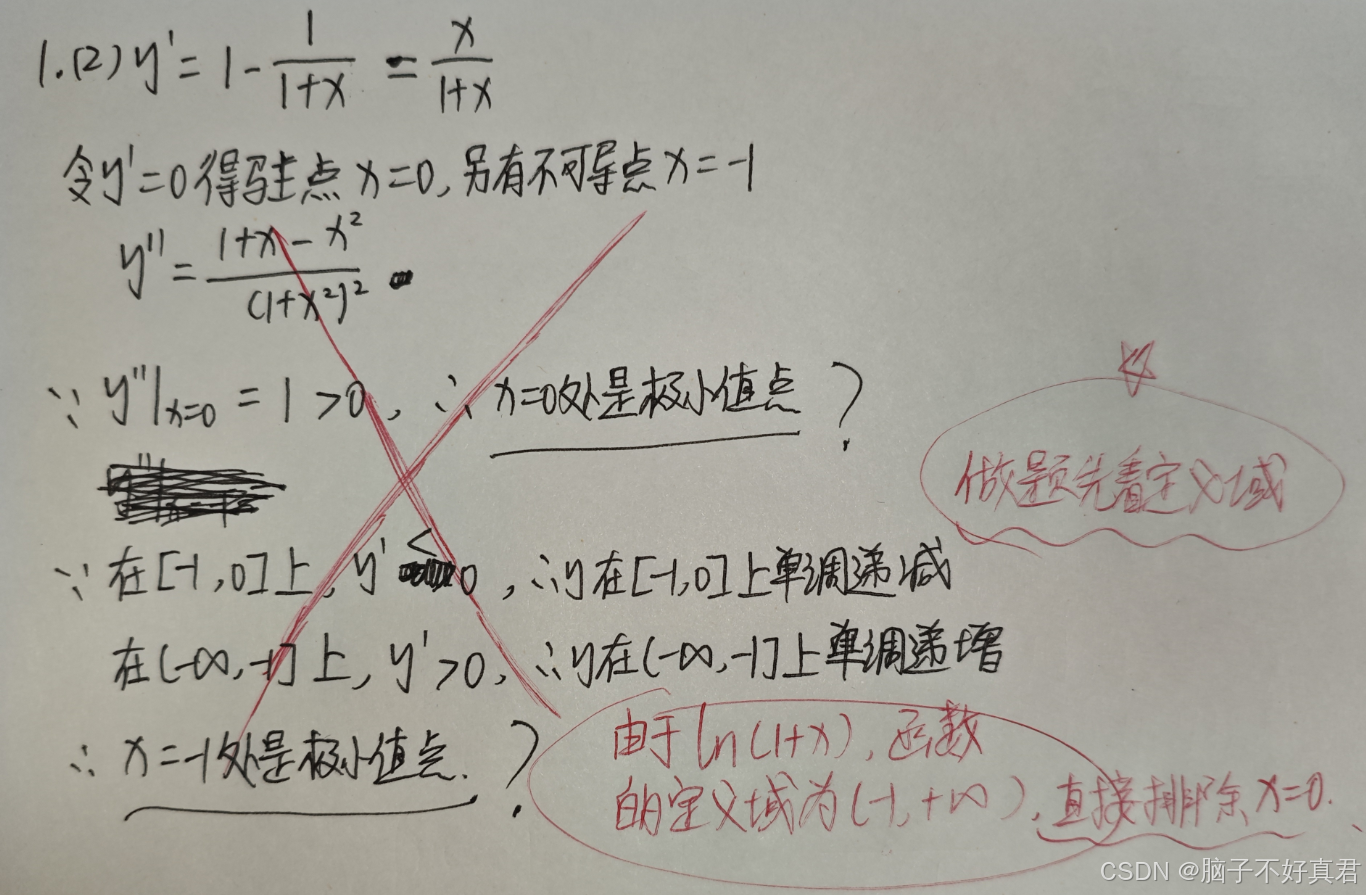 1.(2) y' = 1 - 1/(1+x) = x/(1+x)
令y'=0得驻点x=0,另有不可导点x=-1
y'' = (1+x-x²)/(1+x²)²
∵ y''|x=0 = 1 >0, ∴ x=0处是极小值点 ?
做题先看定义域
∵ 在[-1,0]上, y'<0, ∴y在[-1,0]上单调递减
在(-∞,-1]上, y'>0, ∴y在(-∞,-1]上单调递增
∴ x=-1处是极小值点. ?
由于ln(1+x), 函数
的定义域为(-1,+∞), 直接排除x=0.
CSDN @脑子不好真君